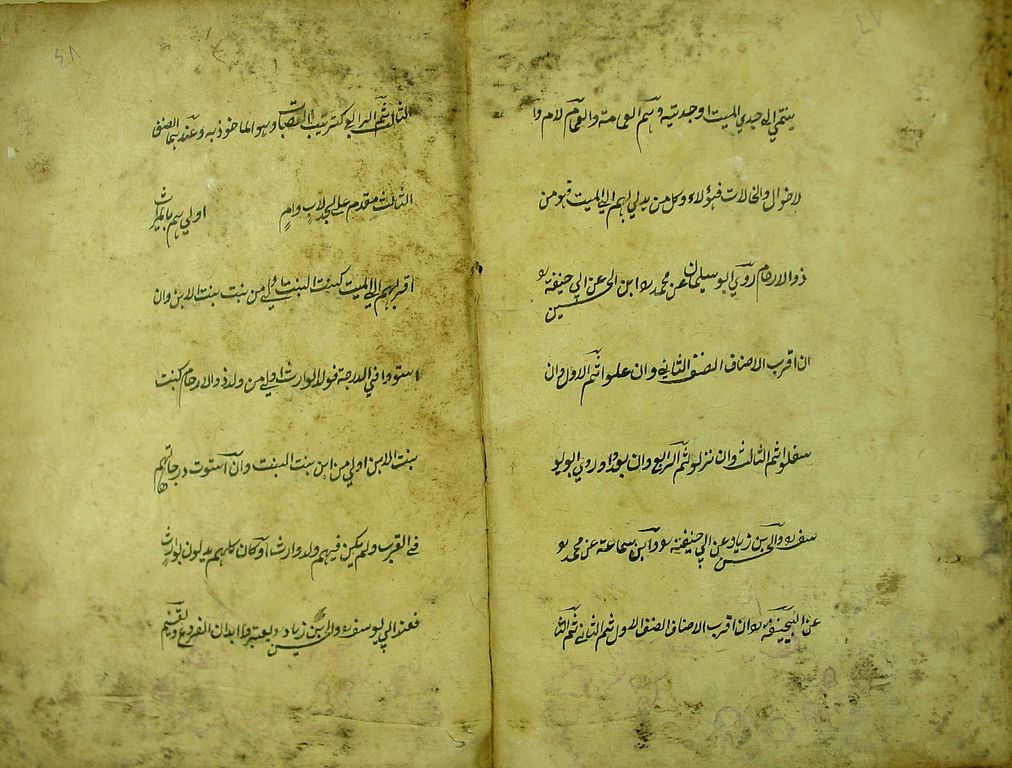 ٤٧
ينتمي الى جدي الميت او جدتيه وهم العمات والاعمام لام وا
لاخوال والخالات فهؤلاء وكل من يدلي بهم الى الميت فهو من
ذوالارحام روي ابو سليمان عن محمد ره ابن الحسن عن ابي حنيفة ره
ان اقرب الاصناف الصنف الثاني وان علوا ثم الاول وان
سفلوا ثم الثالث وان نزلو ثم الرابع وان بعدوا وروي ابو يو
سف ره والحسن بن زياد عن ابي حنيفة ره وابن سماعة عن محمد ره
عن ابيحنيفة ره ان اقرب الاصناف الصنف الاول ثم الثاني ثم الثا
٤٨
الثالث ثم الرابع كترتيب العصبات وهو الماخوذ به وعندهما الصنف
الثالث مقدم على الجد لاب وام اولىهم بالميراث
اقربهم الى الميت كبنت البنت اولى من بنت بنت الابن وان
استووا في الدرجة فولد الوارث اولى من ولد ذوالارحام كبنت
بنت الابن اولى من ابن بنت البنت وان استوت درجاتهم
في القرب ولم يكن فيهم ولد وارث او كان كلهم يدلون بوارث
فعند ابي يوسف ره والحسن بن زياد ره يعتبر ابدان الفروع ويقسم